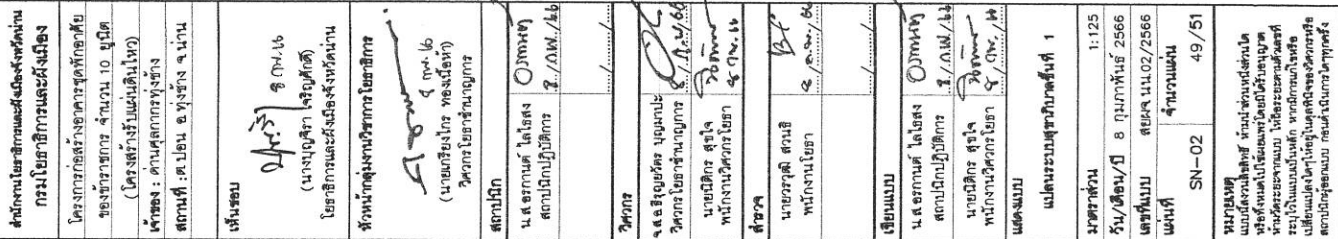 สำนักงานโยธาธิการและผังเมืองจังหวัดน่าน
กรมโยธาธิการและผังเมือง
โครงการก่อสร้างอาคารชุดพักอาศัย
ของข้าราชการ จำนวน 10 ยูนิต
(โครงสร้างรับแผ่นดินไหว)
เจ้าของ : ด่านศุลกากรทุ่งช้าง
สถานที่ : ต.ปอน อ.ทุ่งช้าง จ.น่าน
เห็นชอบ
8 กพ.66
(นางบุญจิรา เจริญศักดิ์)
โยธาธิการและผังเมืองจังหวัดน่าน
หัวหน้ากลุ่มงานวิชาการโยธาธิการ
8 กพ. 66
(นายเกรียงไกร ทองเนื้อห้า)
วิศวกรโยธาชำนาญการ
สถาปนิก
น.ส.อรกานต์ ไลไธสง
สถาปนิกปฏิบัติการ 8 / ก.พ. / 66
วิศวกร
วิศวกรโยธาชำนาญการ
นายนิติกร สุขใจ
พนักงานวิศวกรโยธา 8 กพ. 66
สำรวจ
นายวรวุฒิ สวนธิ
พนักงานโยธา
เขียนแบบ
น.ส.อรกานต์ ไลไธสง
สถาปนิกปฏิบัติการ 8 / ก.พ. / 66
นายนิติกร สุขใจ
พนักงานวิศวกรโยธา 8 / กพ. / 66
แสดงแบบ
แปลนระบบสุขาภิบาลชั้นที่ 1
มาตราส่วน 1:125
วัน/เดือน/ปี 8 กุมภาพันธ์ 2566
เลขที่แบบ สยผจ.นน.02/2566
แผ่นที่ จำนวนแผ่น
SN-02 49/51
หมายเหตุ
แบบนี้สงวนลิขสิทธิ์ ห้ามนำส่วนหนึ่งส่วนใด
หรือทั้งหมดไปใช้เผยแพร่โดยมิได้รับอนุญาต
ห้ามวัดระยะจากแบบ ให้ถือระยะตามตัวเลขที่
ระบุไว้ในแบบเป็นหลัก หากมีการแก้ไขหรือ
เปลี่ยนแปลงใดๆให้อยู่ในดุลพินิจของวิศวกรหรือ
สถาปนิกผู้ออกแบบ ก่อนดำเนินการใดๆทุกครั้ง